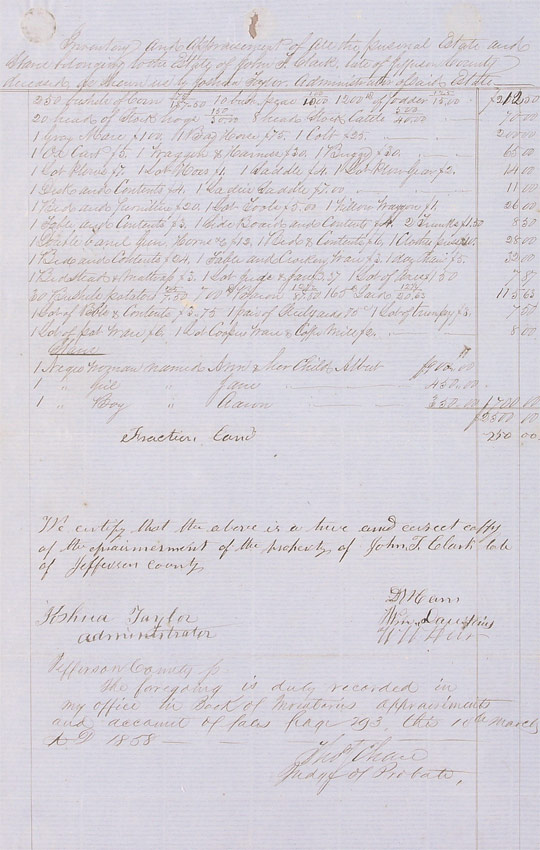 Inventory and Appraisement of all the personal Estate and
Slaves belonging to the Estate of John F. Clark, late of Jefferson County
deceased, as shown us by Joshua Taylor Administrator Said Estate
250 bushels of Corn 157.50 10 bush peas 10.00 1200 lb of fodder 15.00
20 head of Stock hogs 30.00 8 head Stock Cattle 40.00 70 00
1 Gray Mare $100. 1 Bay Horse $75. 1 Colt $25. 200 00
1 Ox Cart $5. 1 Waggon & Harness $30. 1 Buggy $30. 65 00
1 Lot Plows $7. 1 Lot Hoes $1. 1 Saddle $4. 1 Lot Plow Gear $2. 14 00
1 Desk and Contents $4. 1 Ladies Saddle $7.00 11 00
1 Bed and furniture $20. 1 Lot Tools $5.00 1 Willow Wagon $1 26 00
1 Table and Contents $3. 1 Side Board and Contents $4. 2 Trunks $1.50 8 50
1 Double barrel gun, Horns & $12. 1 Bed & Contents $6, 1 Clothes press $10. 28 00
1 Bed and Contents $24. 1 Table and Crockery Ware $3. 1 $5. 32 00
1 Bedstead & Mattrass $3. 1 Lot 37 1 Lot of 1 50 7 87
Bushels potatoes 7.50 700 lb Bacon 87.50 165 lb Lard 20.63 115 63
1 Lot of & Contents $3.75 1 pair of Steelyards 75 1 Lot of $3. 7 50
1 Lot of Pot Ware $6. 1 Lot Cooper Ware & Coffee Mill $2. 8 00
Slaves
1 Negro Woman named Ann & her Child Albert $900.00
1 " Girl " Jane 450.00
1 " Boy " Aaron 350.00 1700 00
$2500 00
Fraction Land 250 00
We certify that the above is a true and correct copy
of the of the property of John F. Clark late
of Jefferson County
Joshua Taylor
administrator
Wm
Jefferson County
The foregoing is duly recorded in
my office in Book of Inventories appraisments
and account of sales Page 293 the 10th March
AD 1858
Judge of Probate,